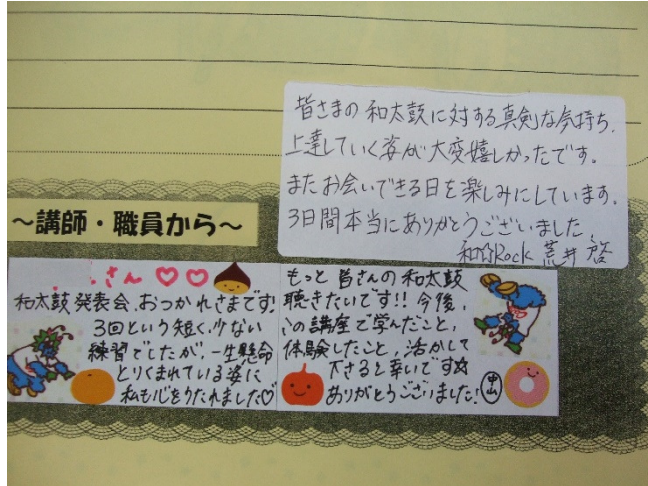 皆さまの和太鼓に対する真剣な気持ち、
上達していく姿が大変嬉しかったです。
またお会いできる日を楽しみにしています。
3日間本当にありがとうございました。
和☆Rock 荒井 啓
～講師・職員から～
さん♡♡
和太鼓発表会、おつかれさまです!
3回という短く、少ない
練習でしたが、一生懸命
とりくまれている姿に
私も心をうたれました♡
もっと皆さんの和太鼓
聴きたいです!!今後、
この講座で学んだこと、
体験したこと、活かして
下さると幸いです☆
ありがとうございました!中山